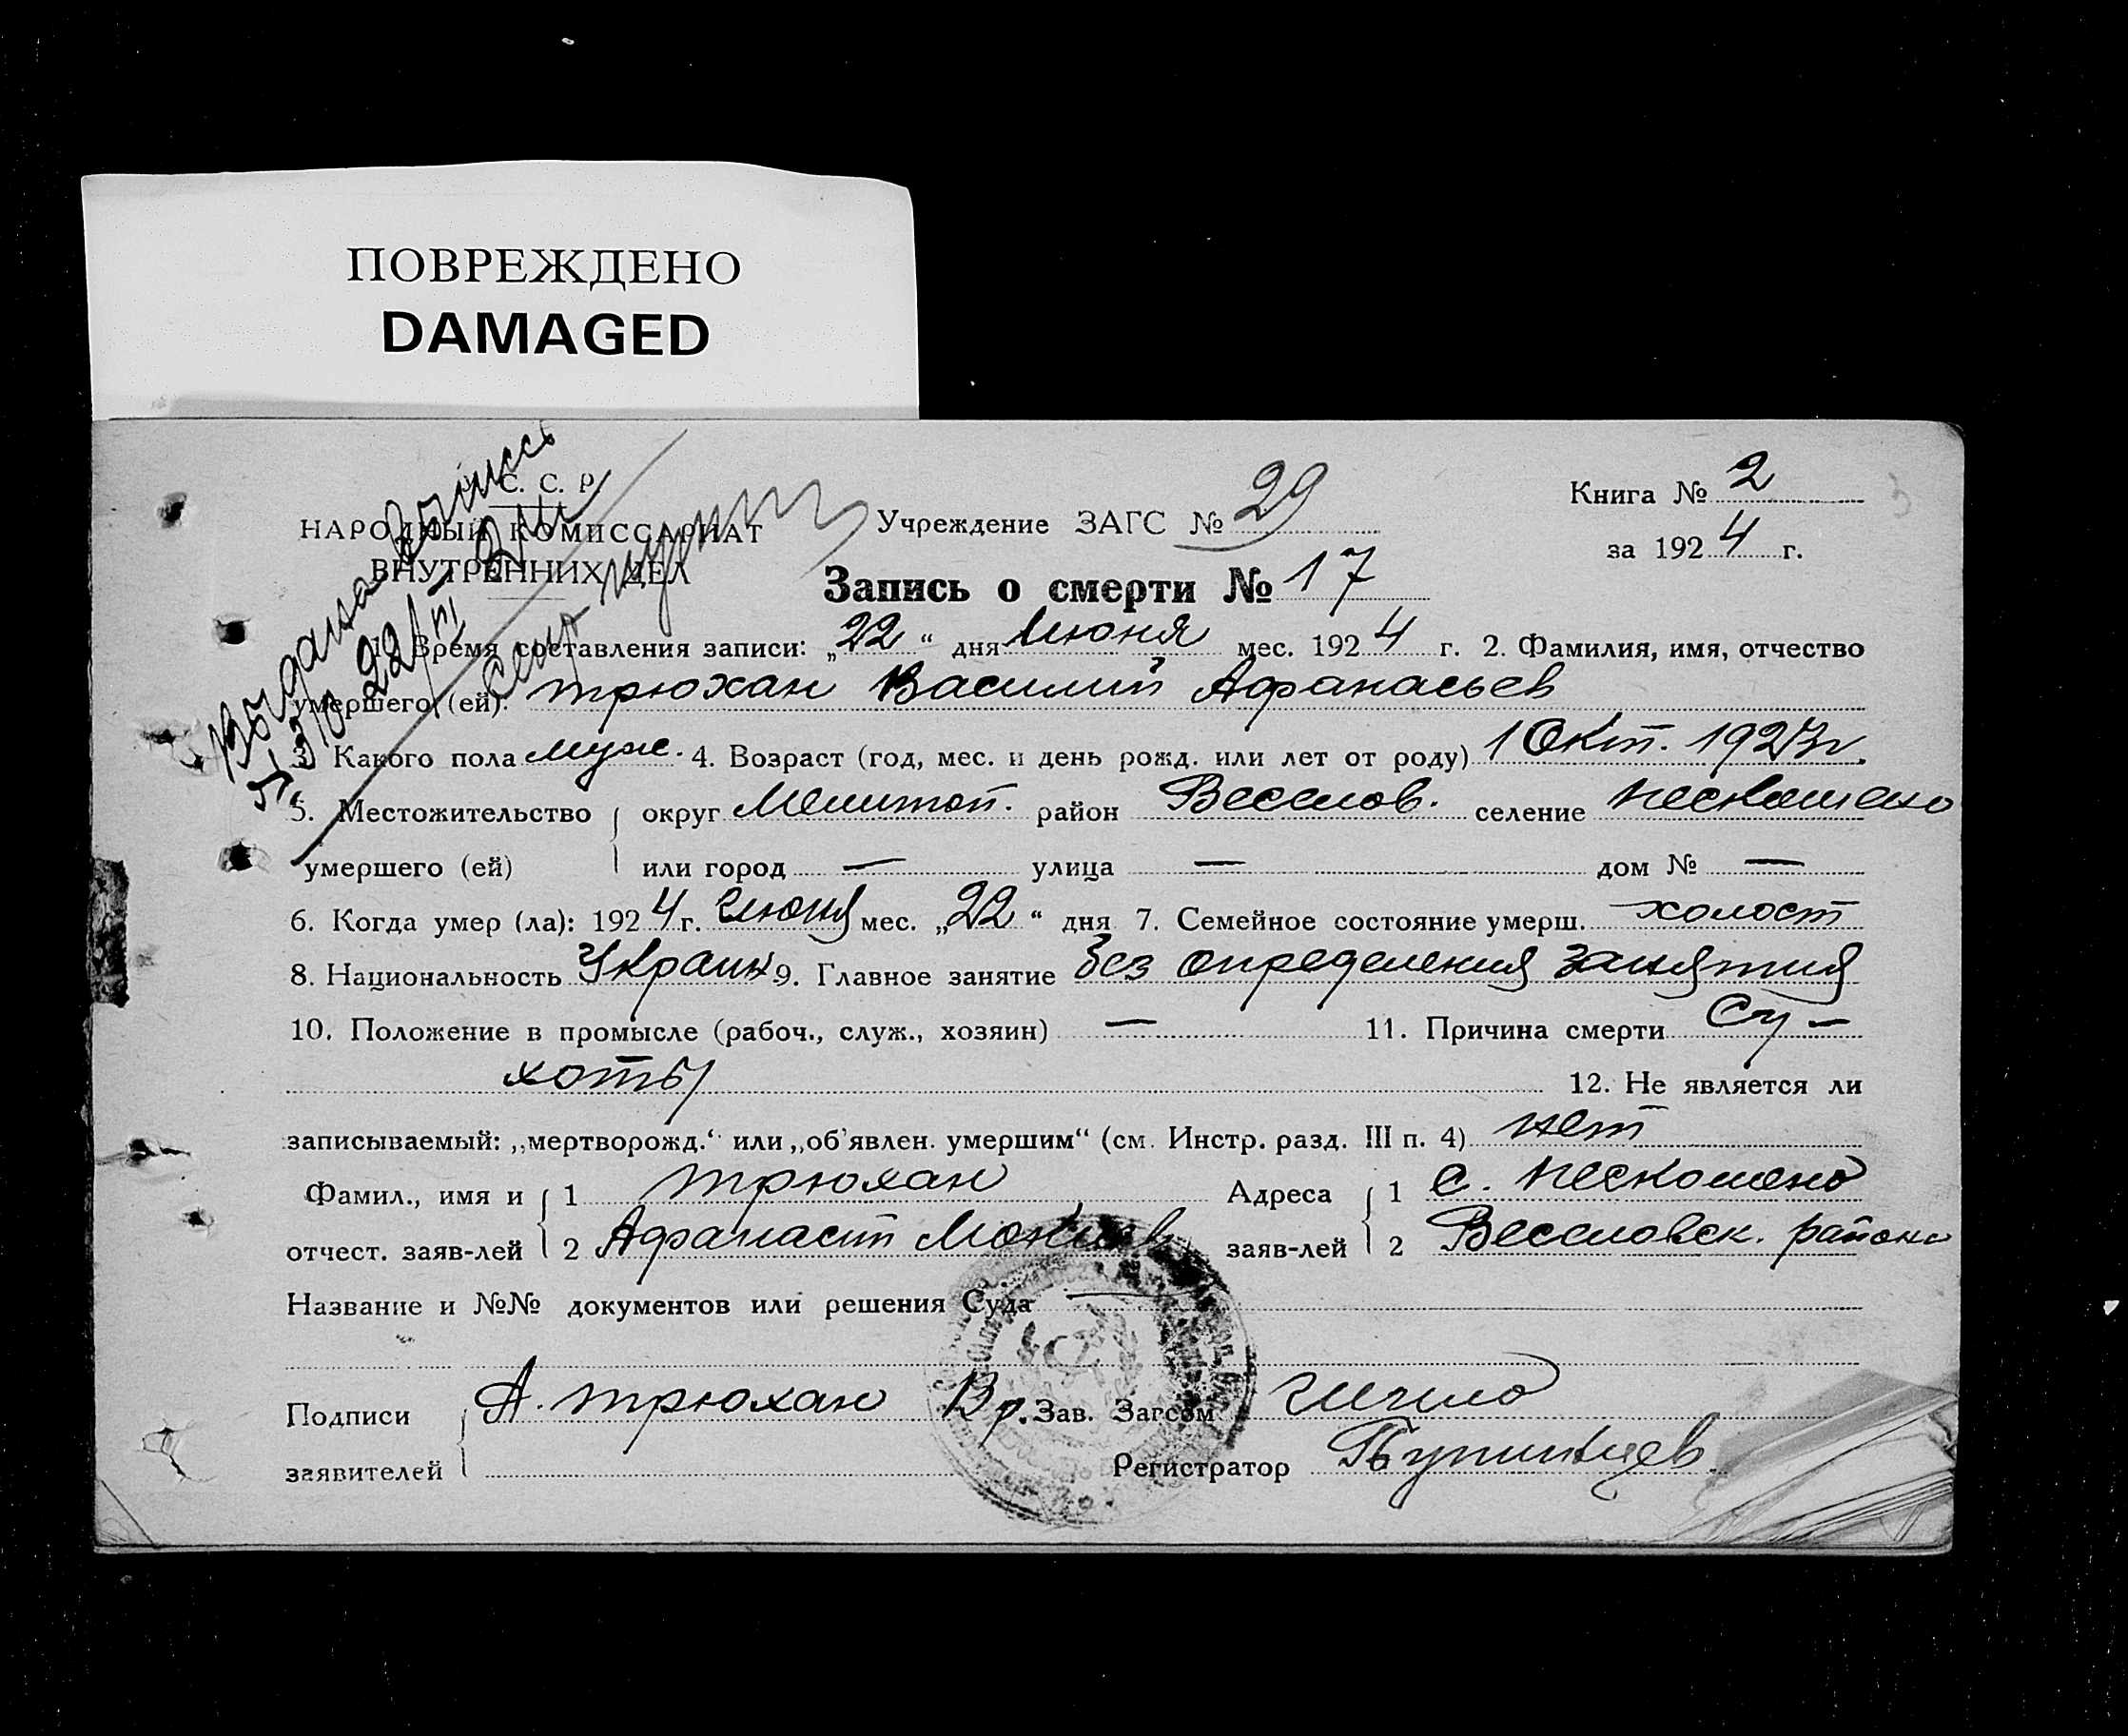 ПОВРЕЖДЕНО
DAMAGED
С. С. Р.
НАРОДНЫЙ КОМИССАРИАТ
ВНУТРЕННИХ ДЕЛ
Выдана выпись
22/VI
Учреждение ЗАГС № 29
Книга № 2
за 1924 г.
Запись о смерти № 17
1. Время составления записи: „22“ дня Июня мес. 1924 г. 2. Фамилия, имя, отчество
умершего (ей): Трюхан Василий Афанасьев
3. Какого пола муж. 4. Возраст (год, мес. и день рожд. или лет от роду) 1 Окт. 1923 г.
5. Местожительство округ Мелитоп. район Веселов. селение Нескошено
умершего (ей) или город — улица — дом № —
6. Когда умер (ла): 1924 г. Июня мес. „22“ дня 7. Семейное состояние умерш. холост
8. Национальность Украин 9. Главное занятие без определения занятия
10. Положение в промысле (рабоч., служ., хозяин) — 11. Причина смерти Су-
хоты 12. Не является ли
записываемый: „мертворожд.“ или „об'явлен. умершим“ (см. Инстр. разд. III п. 4) нет
Фамил., имя и 1 Трюхан Адреса 1 с. Нескошено
отчест. заяв-лей 2 Афанасий Мокиев заяв-лей 2 Веселовск. района
Название и №№ документов или решения Суда —
Подписи А. Трюхан Вр. Зав. Загсом
заявителей Регистратор